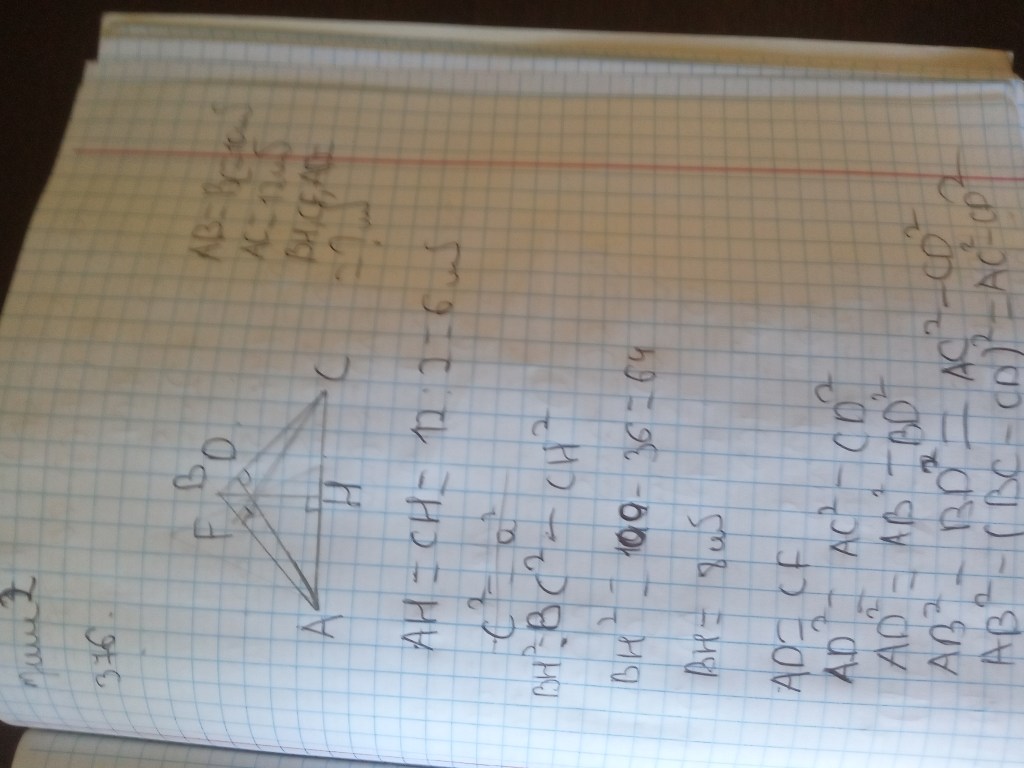 376.
F B D
A H C
AB = BC =
AC = 12 սմ
BH, CF, AD =
= ? սմ
AH = CH = 12 : 2 = 6 սմ
BH² = BC² - CH²
BH² = 100 - 36 = 64
BH = 8 սմ
AD = CF
AD² = AC² - CD²
AD² = AB² - BD²
AB² - BD² = AC² - CD²
AB² - (BC - CD)² = AC² - CD²